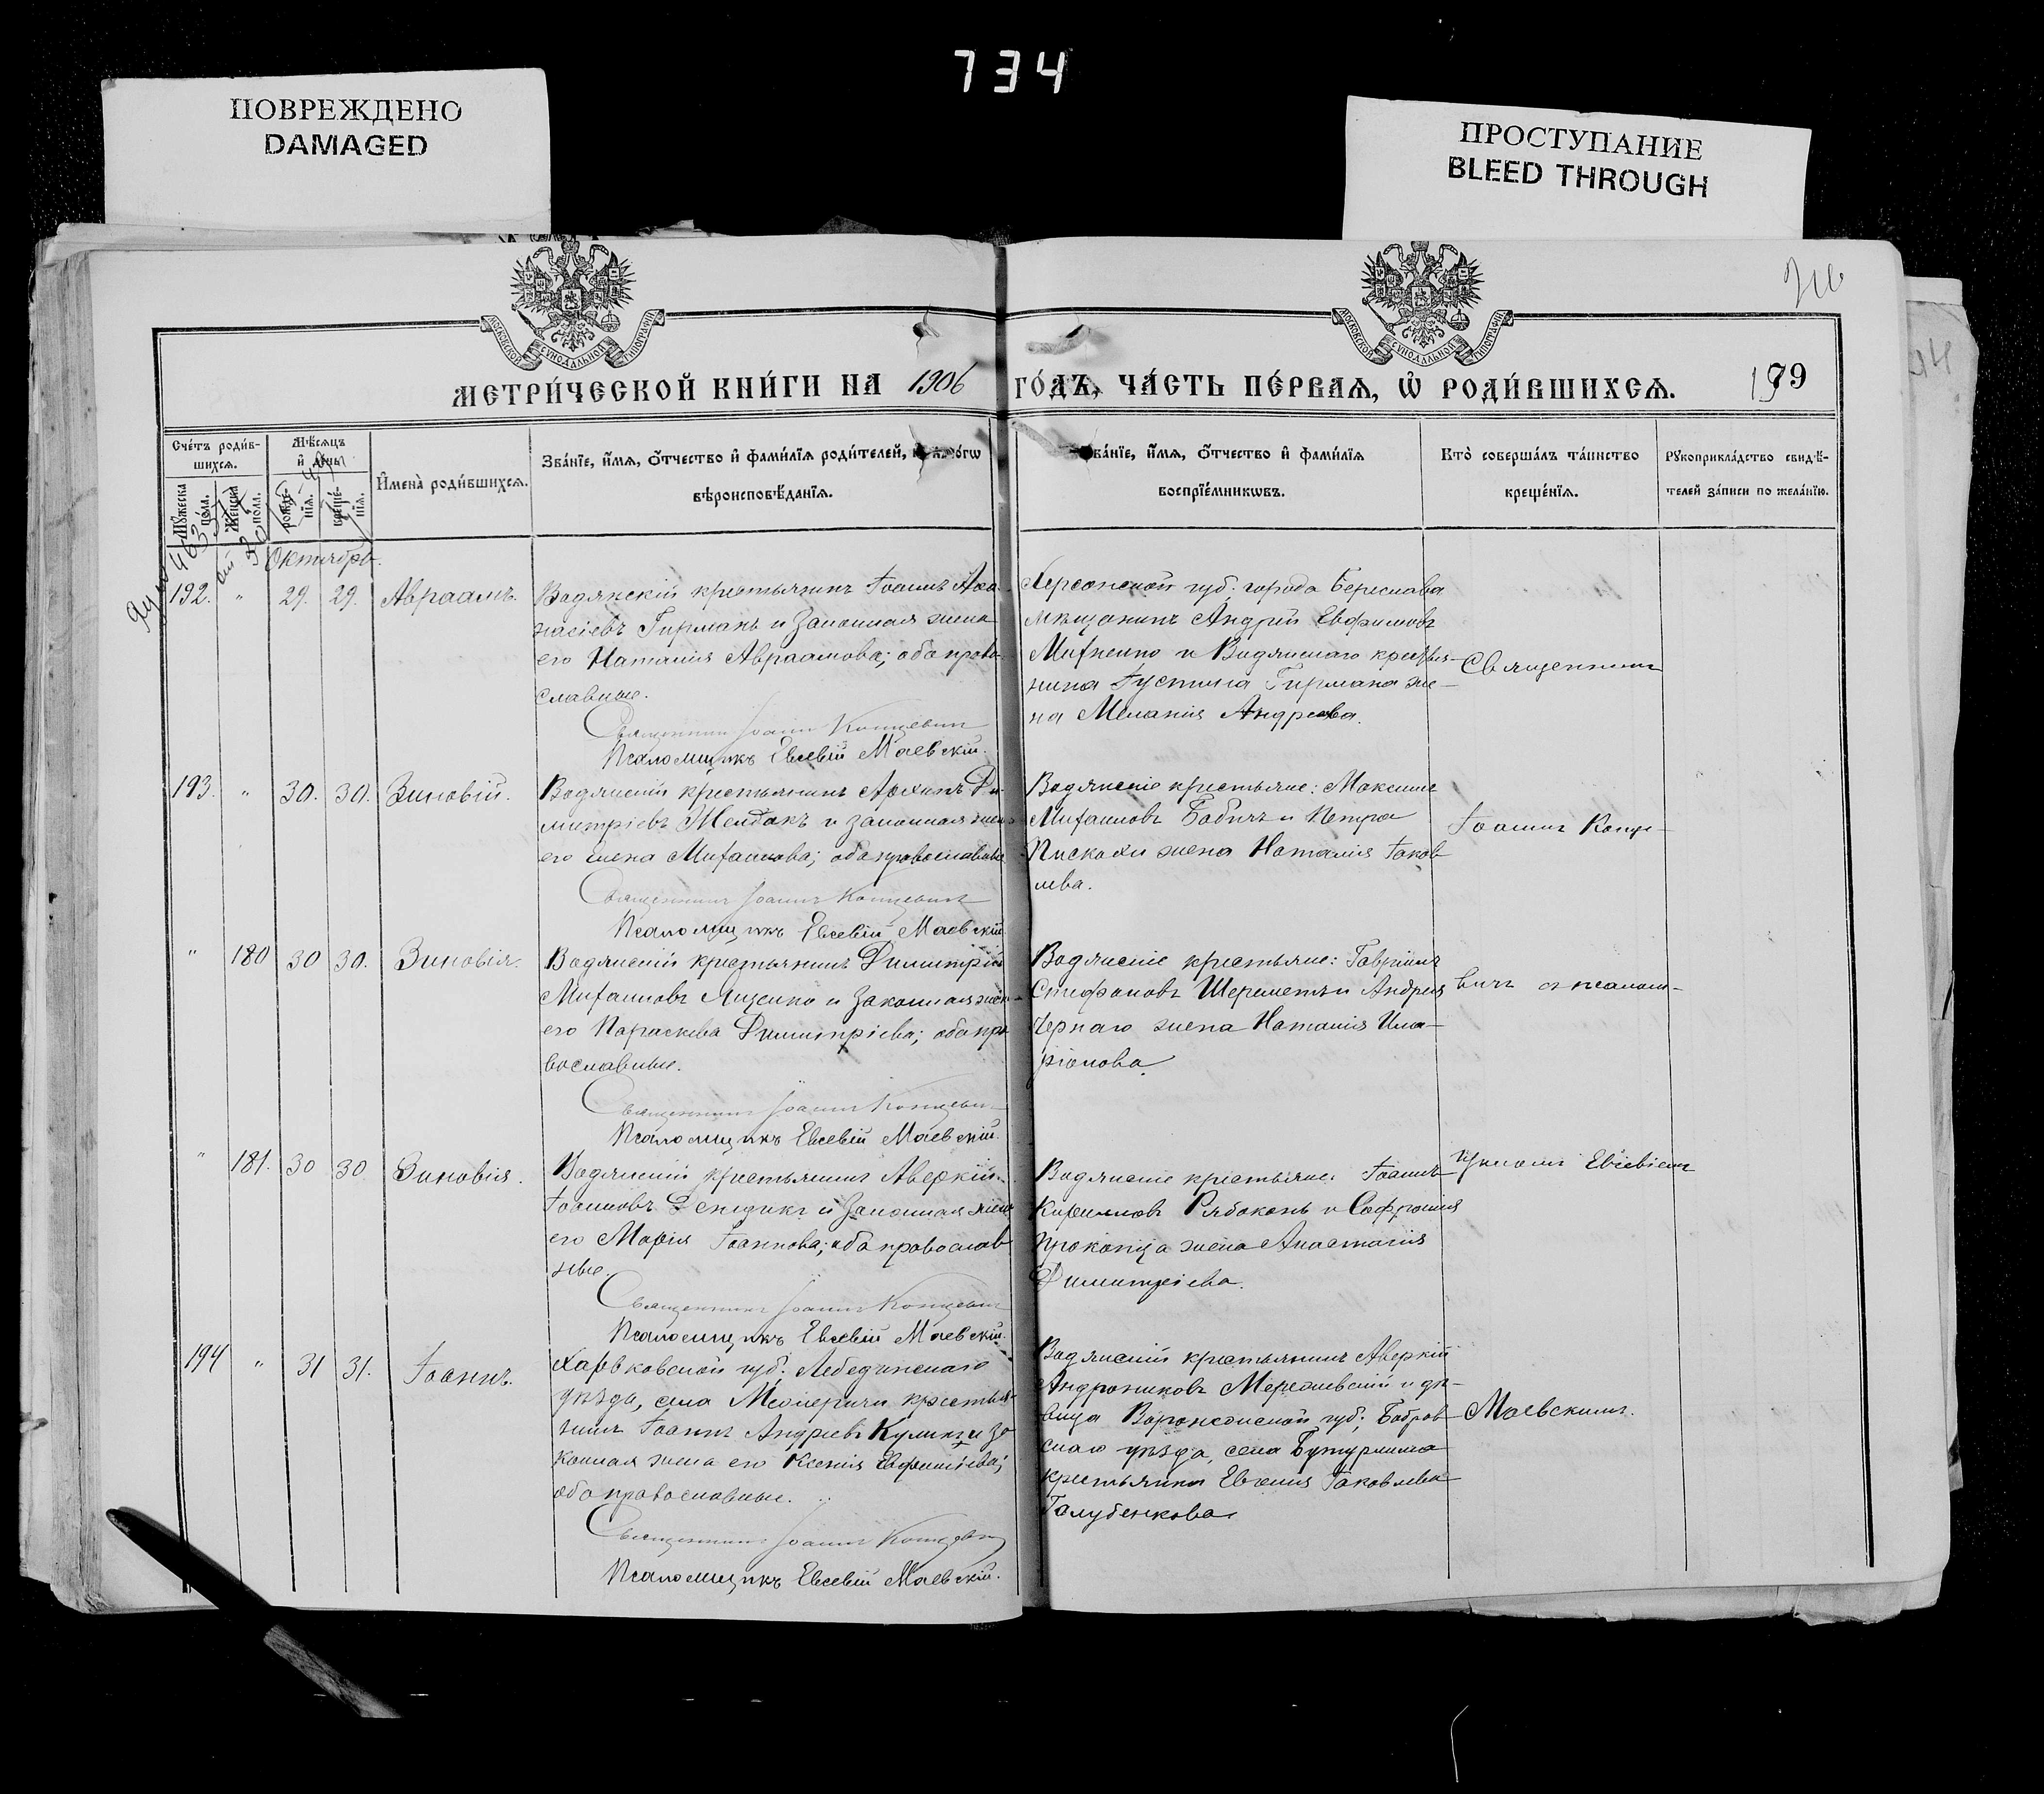 734
ПОВРЕЖДЕНО
DAMAGED
ПРОСТУПАНИЕ
BLEED THROUGH
МОСКОВСКОЙ СѴНОДАЛЬНОЙ ТИПОГРАФІИ
МОСКОВСКОЙ СѴНОДАЛЬНОЙ ТИПОГРАФІИ
МЕТРИ́ЧЕСКОЙ КНИ́ГИ НА 1906 ГО́ДЪ, ЧА́СТЬ ПЕ́РВАЯ, Ѽ РОДИ́ВШИХСЯ.
179
Сче́тъ роди́в-
шихся.
Мѣ́сяцъ
и҆ де́нь
Мꙋ́жеска
по́ла.
Же́нска
по́ла.
рожде́-
нїѧ.
креще́-
нїѧ.
И҆мена̀ роди́вшихсѧ.
Зва́нїе, и҆́мѧ, ѻ҆́тчество и҆ фами́лїѧ роди́телей,
вѣроисповѣ́данїѧ.
Зва́нїе, и҆́мѧ, ѻ҆́тчество и҆ фами́лїѧ
воспрїе́мникѡвъ.
Кто̀ соверша́лъ та́инство
креще́нїѧ.
Рꙋкоприкла́дство свидѣ́-
телей за́писи по жела́нїю.
Октябрь.
192. " 29. 29. Авраамъ.
Водянскій крестьянинъ Іоаннъ Аѳа-
насіевъ Гирманъ и законная жена
его Наталія Авраамова; оба право-
славные.
Священникъ Іоаннъ Концевичъ
Псаломщикъ Евсевій Маевскій.
Херсонской губ. города Береслава
мѣщанинъ Андрей Евфимовъ
Михненко и Водянскаго крестья-
нина Іустина Гирмана же-
на Меланія Андреева.
193. " 30. 30. Зиновій.
Водянскій крестьянинъ Архипъ Ди-
митріевъ Желдакъ и законная жена
его Елена Михаилова; оба православные
Священникъ Іоаннъ Концевичъ
Псаломщикъ Евсевій Маевскій
Водянскіе крестьяне: Максимъ
Михаиловъ Бабичъ и Петра
Пискохи жена Наталія Іаков-
лева.
" 180 30 30. Зиновія.
Водянскій крестьянинъ Димитрій
Михаиловъ Лиценко и законная жена
его Параскева Димитріева; оба пра-
вославные.
Священникъ Іоаннъ Концевичъ
Псаломщикъ Евсевій Маевскій.
Водянскіе крестьяне: Гавріилъ
Стефановъ Шереметъ и Андрея
Чернаго жена Наталія Ила-
ріонова.
" 181. 30 30. Зиновія.
Водянскій крестьянинъ Аверкій
Іоанновъ и законная жена
его Марія Іоаннова; оба православ-
ные.
Священникъ Іоаннъ Концевичъ
Псаломщикъ Евсевій Маевскій.
Водянскіе крестьяне: Іоаннъ
Кирилловъ Рябоконь и Софронія
Прокопца жена Анастасія
Димитріева.
194 " 31 31. Іоаннъ.
Харьковской губ. Лебединскаго
уѣзда, села Межирича крестья-
нинъ Іоаннъ Андреевъ Куликъ и за-
конная жена его Ксенія Евфиміева;
оба православные.
Священникъ Іоаннъ Концевичъ
Псаломщикъ Евсевій Маевскій.
Водянскій крестьянинъ Аверкій
Андрониковъ и дѣ-
вица Воронежской губ. Бобров-
скаго уѣзда, села Бутурлина
крестьянка Евгенія Іаковлева
Голубенкова
Священникъ
Іоаннъ Конце-
вичъ съ псалом-
щикомъ Евсевіемъ
Маевскимъ.